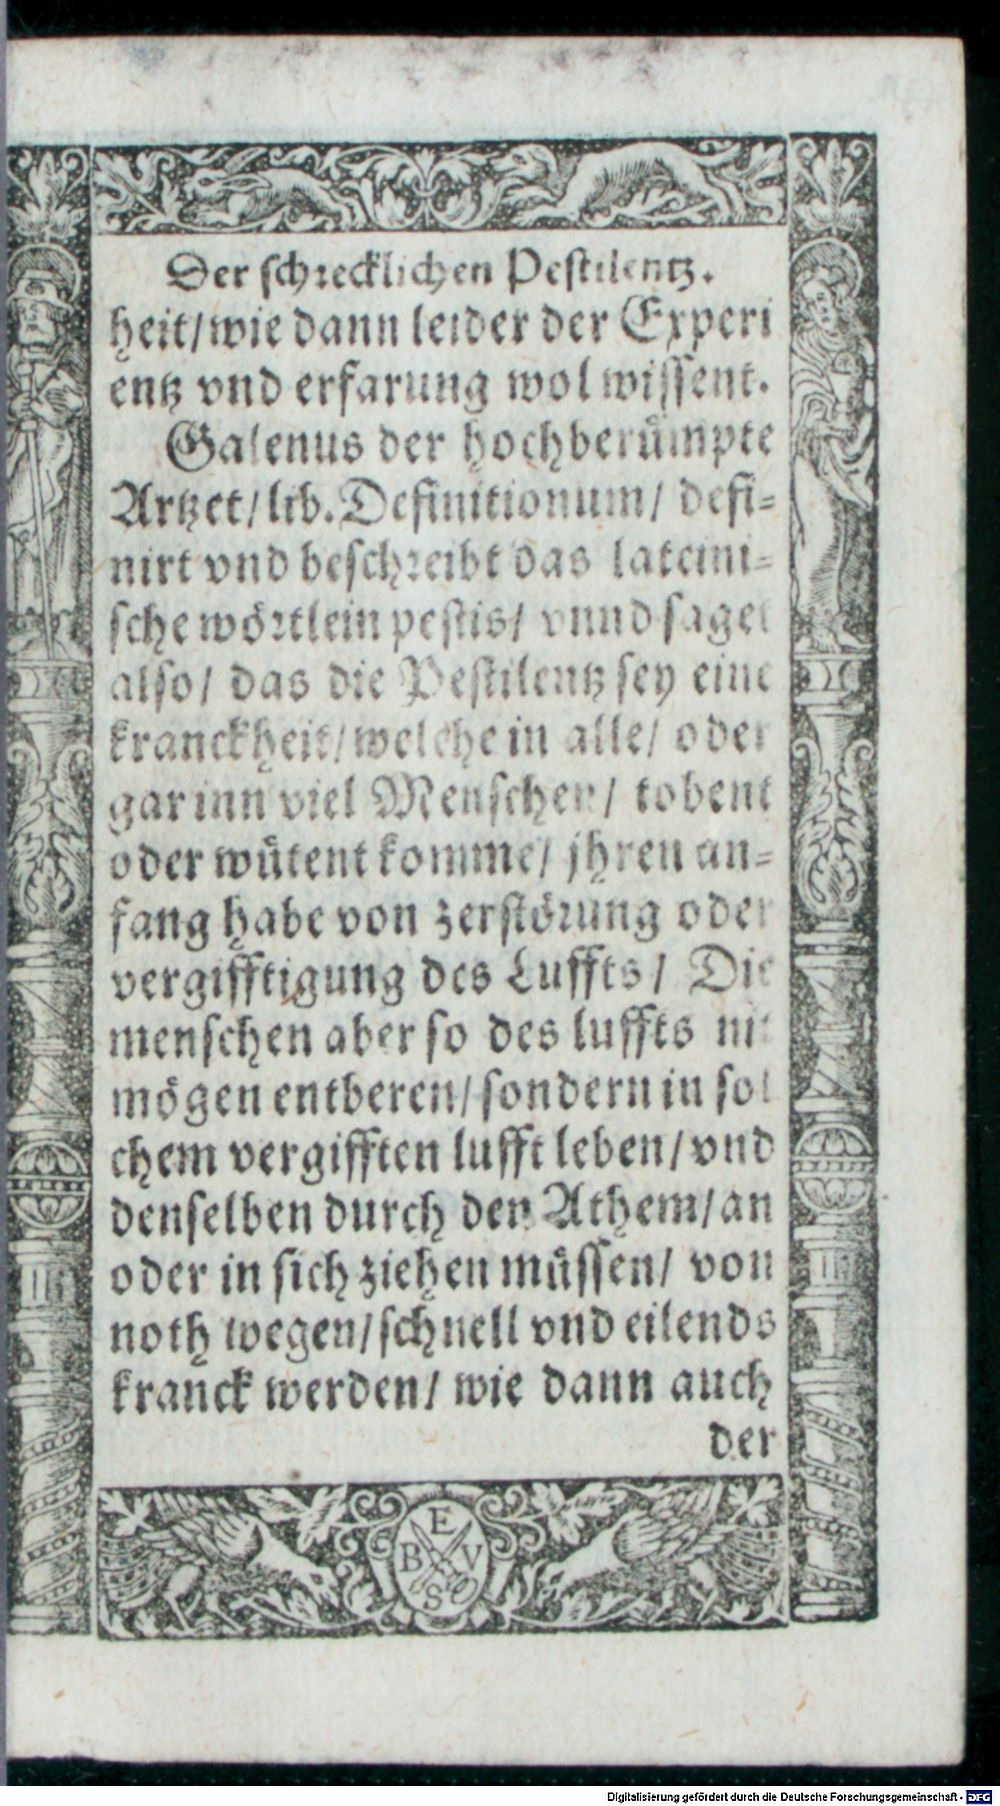 Der schrecklichen Pestilentz.
heit/wie dann leider der Experi
entz vnd erfarung wol wissent.
Galenus der hochberümpte
Artzet/lib.Definitionum/ defi-
nirt vnd beschreibt das lateini-
sche wörtlein pestis/ vnnd saget
also/ das die Pestilentz sey eine
kranckheit/welche in alle/ oder
gar inn viel Menschen/ tobent
oder wütent komme/ jhren an-
fang habe von zerstörung oder
vergifftigung des Luffts/ Die
menschen aber so des luffts nit
mögen entberen/sondern in sol
chem vergifften lufft leben/vnd
denselben durch den Athem/an
oder in sich ziehen müssen/ von
noth wegen/schnell vnd eilends
kranck werden/ wie dann auch
der
E
B V
S
Digitalisierung gefördert durch die Deutsche Forschungsgemeinschaft - DFG